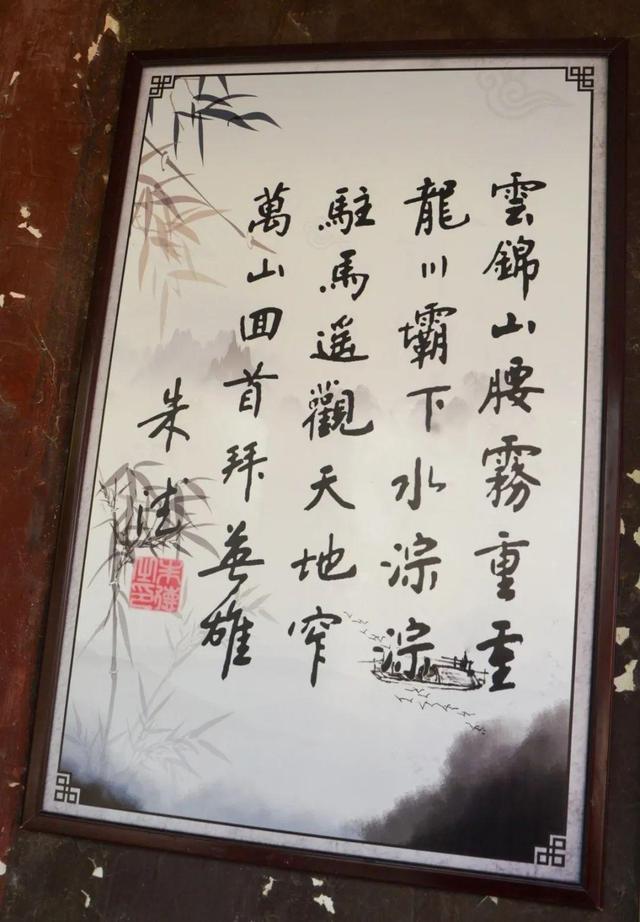 雲錦山腰霧重重
龍川壩下水淙淙
駐馬遥觀天地窄
萬山囬首拜英雄
朱